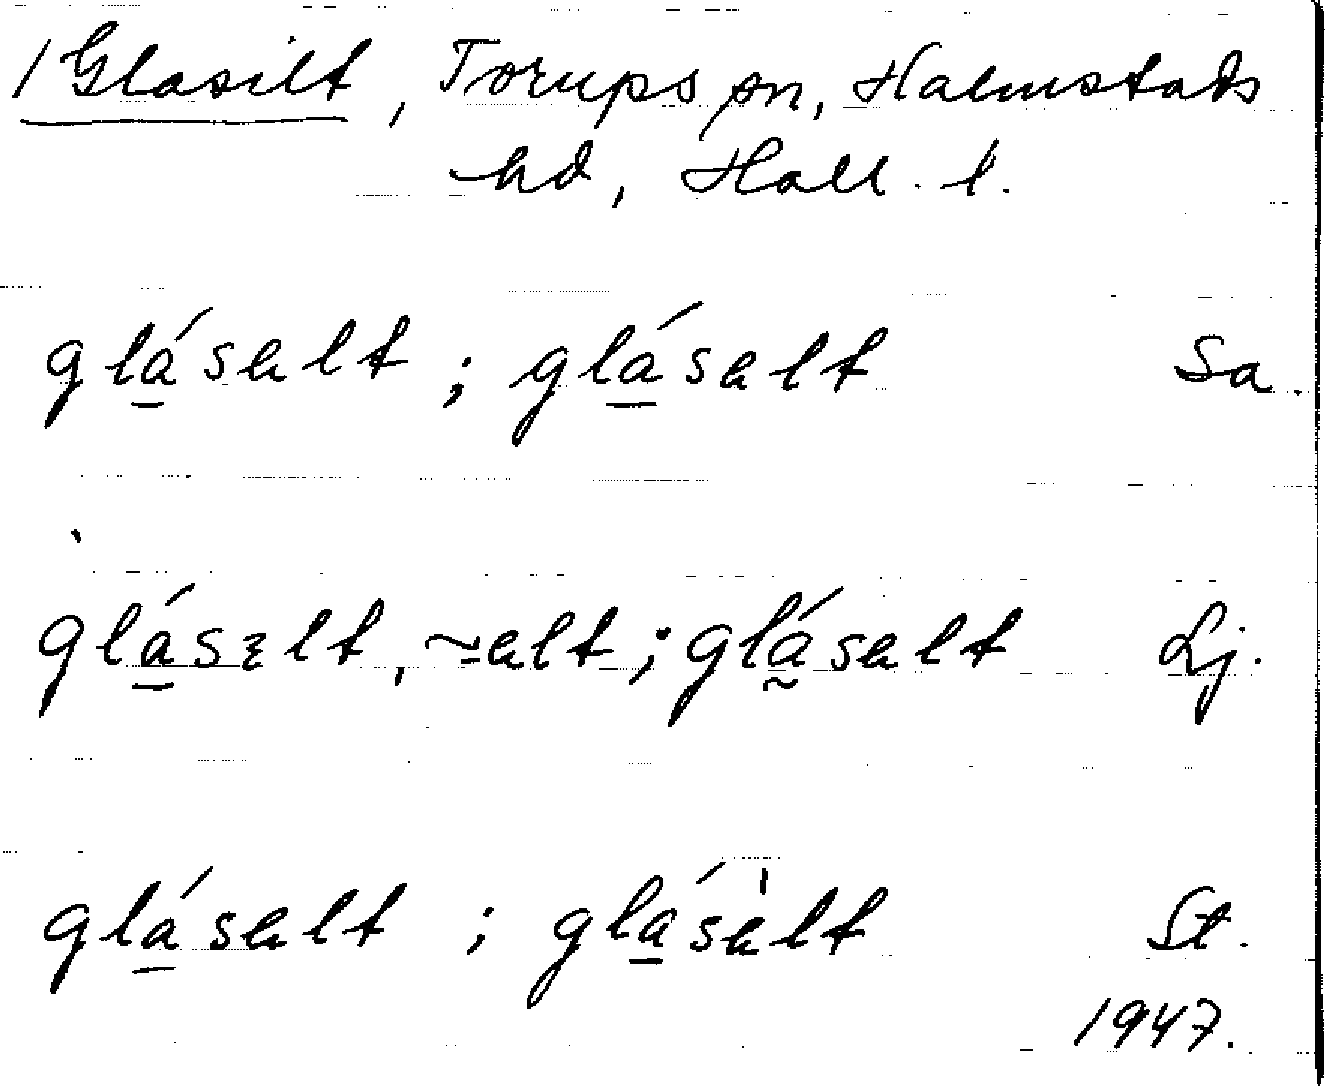 /Glasilt, Torups sn, Halmstads
hd, Hall. l.
glá̱sₑlt ; glá̱sₑlt Sa.
glá̱sɛlt, ~ₑlt ; glá̰sₑlt Lj.
glá̱sₑlt ; glá̱sₑ̍lt St.
1947.